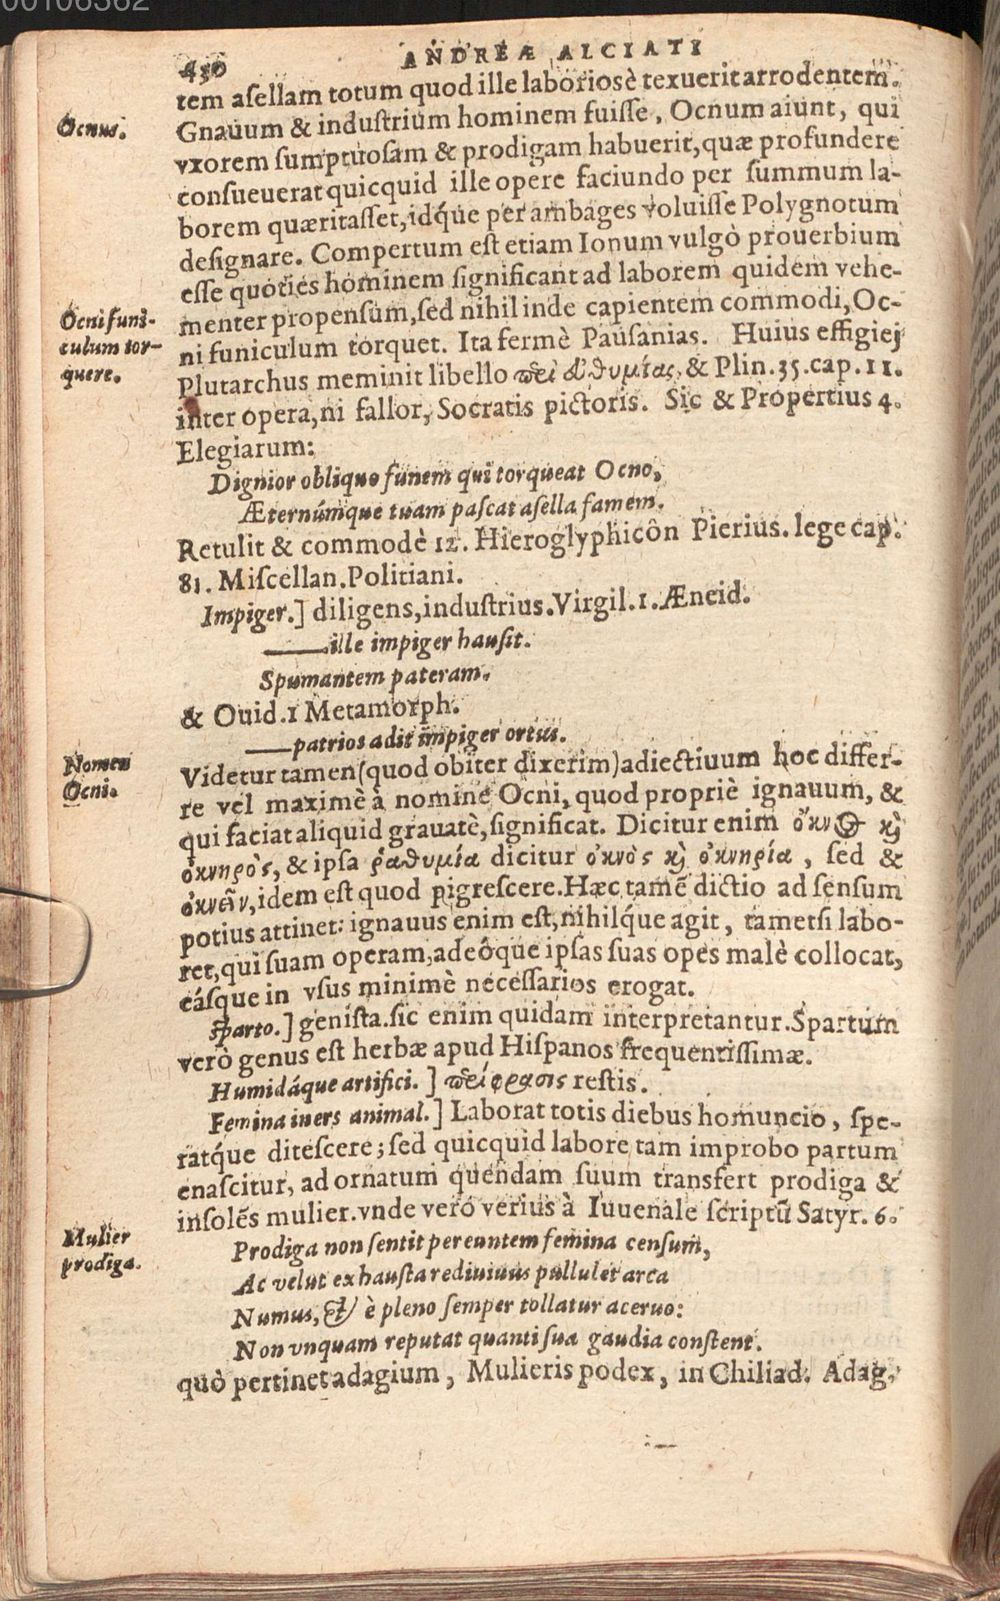 00106362
450
ANDREÆ ALCIATI
tem asellam totum quod ille laboriosè texuerit arrodentem.
Ocnus.
Gnauum & industrium hominem fuisse, Ocnum aiunt, qui
vxorem sumptuosam & prodigam habuerit, quæ profundere
consueuerat quicquid ille opere faciundo per summum la-
borem quæritasset, idq́ue per ambages voluisse Polygnotum
designare. Compertum est etiam Ionum vulgò prouerbium
esse quoties hominem significant ad laborem quidem vehe-
Ocni funi-
culum tor-
quere.
menter propensum, sed nihil inde capientem commodi, Oc-
ni funiculum torquet. Ita fermè Pausanias. Huius effigiei
Plutarchus meminit libello πεὶ ἀ̓θυμίας, & Plin. 35. cap. 11.
inter opera, ni fallor, Socratis pictoris. Sic & Propertius 4.
Elegiarum:
Dignior obliquo funem qui torqueat Ocno,
Æternúmque tuam pascat asella famem.
Retulit & commodè 12. Hieroglyphicôn Pierius. lege cap.
81. Miscellan. Politiani.
Impiger.] diligens, industrius. Virgil. 1. Æneid.
——ille impiger hausit.
Spumantem pateram.
& Ouid. 1 Metamorph.
——patrios adit impiger ortus.
Nomen
Ocni.
Videtur tamen (quod obiter dixerim) adiectiuum hoc differ-
re vel maximè à nomine Ocni, quod propriè ignauum, &
qui faciat aliquid grauatè, significat. Dicitur enim ὄκνος καὶ
ὀκνηρὸς, & ipsa ῥᾳθυμία dicitur ὀκνὸς καὶ ὀκνηρία, sed &
ὀκνεῖν, idem est quod pigrescere. Hæc tamē dictio ad sensum
potius attinet: ignauus enim est, nihilq́ue agit, tametsi labo-
ret, qui suam operam, adeôque ipsas suas opes malè collocat,
eásque in vsus minimè necessarios erogat.
Sparto.] genista. sic enim quidam interpretantur. Spartum
verò genus est herbæ apud Hispanos frequentissimæ.
Humidáque artifici.] πείφρασις restis.
Femina iners animal.] Laborat totis diebus homuncio, spe-
ratq́ue ditescere; sed quicquid labore tam improbo partum
enascitur, ad ornatum quendam suum transfert prodiga &
insolēs mulier. vnde verò verius à Iuuenale scriptū Satyr. 6.
Mulier
prodiga.
Prodiga non sentit pereuntem femina censum,
Ac velut exhausta rediuiuus pullulet arca
Numus, & è pleno semper tollatur aceruo:
Non vnquam reputat quanti sua gaudia constent.
quò pertinet adagium, Mulieris podex, in Chiliad. Adag.